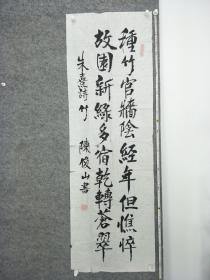 種竹官牆陰經年但憔悴
故園新綠多宿乾轉蒼翠
朱熹詩竹 陳俊山書